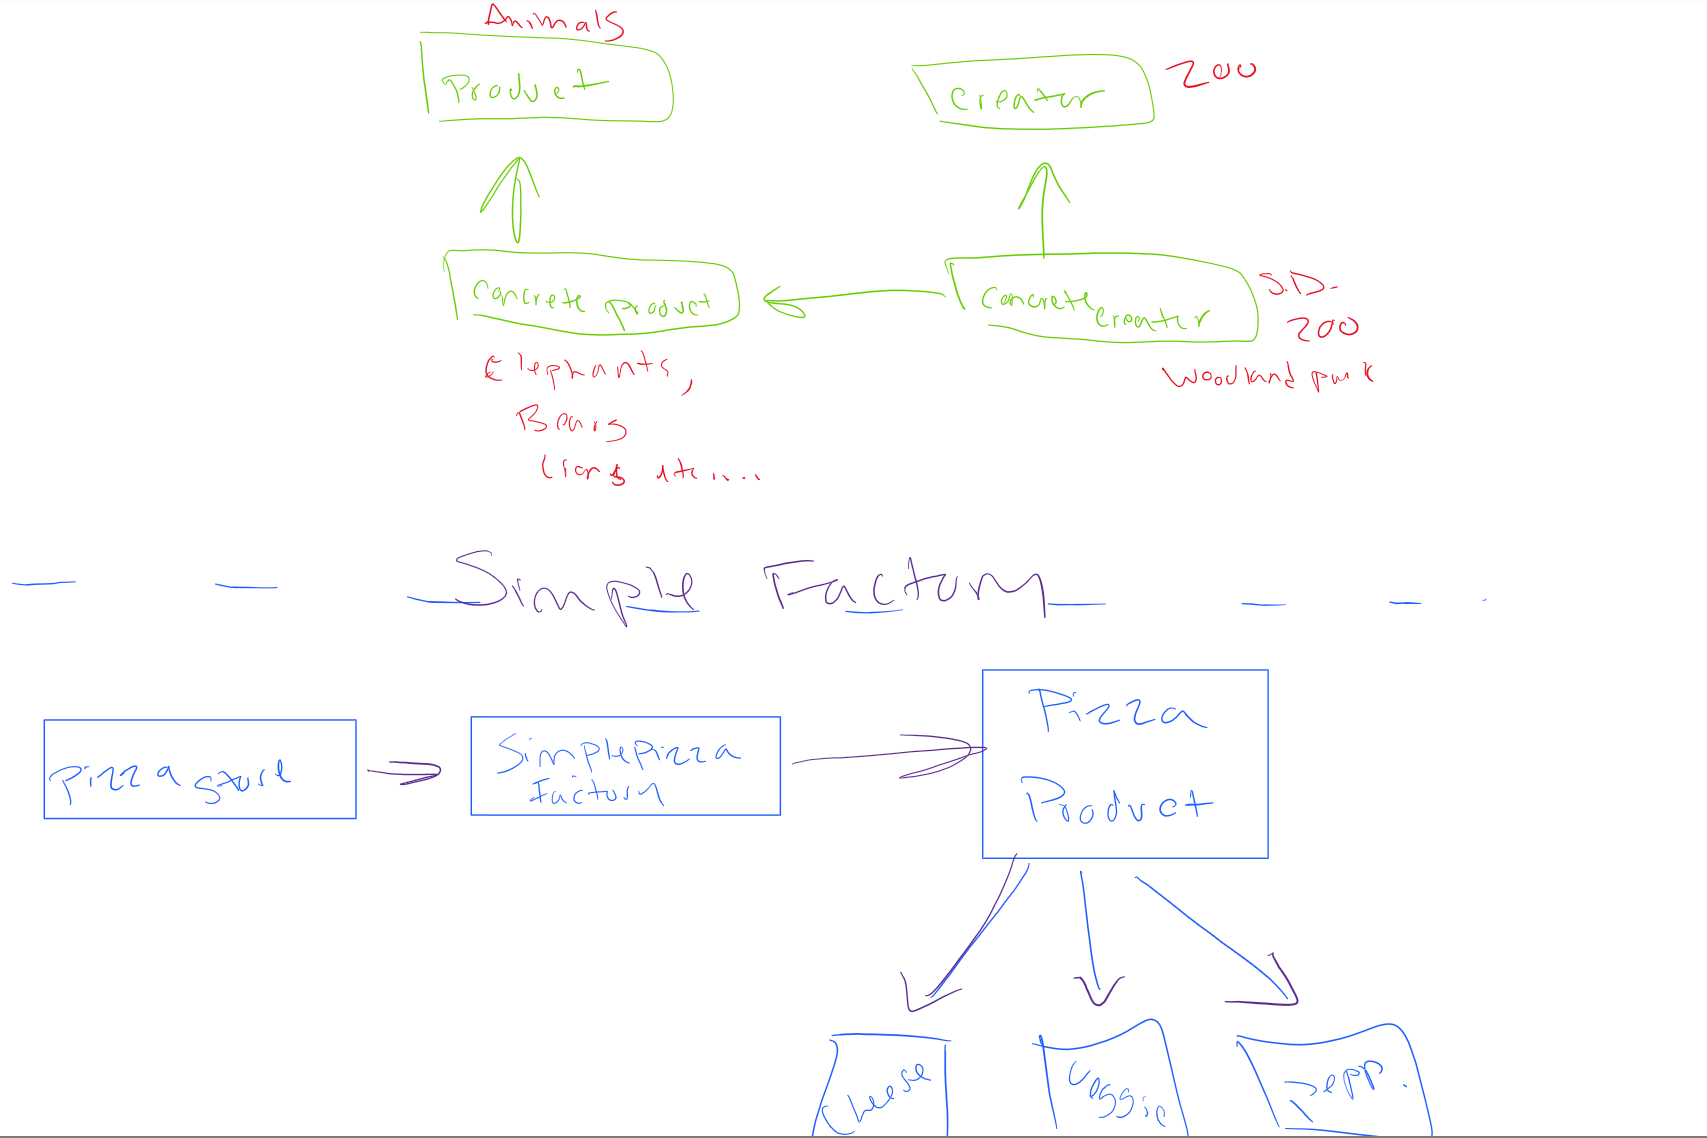 Animals
Product
Creator
Zoo
Concrete product
Concrete
Creator
S.D.
Zoo
Woodland park
Elephants,
Bears
Lions etc.....
Simple Factory
Pizza store
Simplepizza
Factory
Pizza
Product
Cheese
Veggie
Pepp.